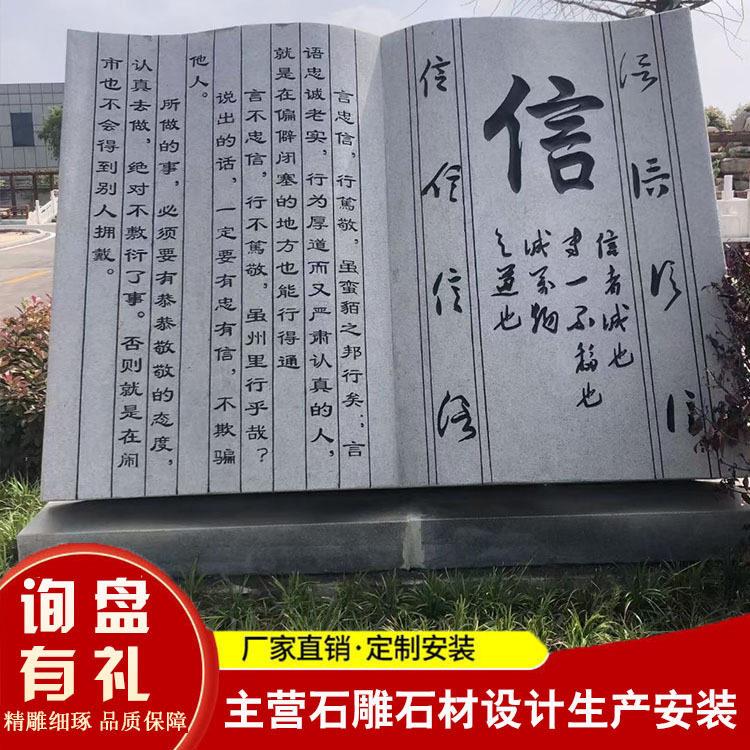 信
信者诚也
专一不移也
诚万物
之道也
信
信
信
言忠信，行篤敬，虽蛮貊之邦行矣；言
语忠诚老实，行为厚道而又严肃认真的人，
就是在偏僻闭塞的地方也能行得通
言不忠信，行不篤敬，虽州里行乎哉？
说出的话，一定要有忠有信，不欺骗
他人。
所做的事，必须要有恭恭敬敬的态度，
认真去做，绝对不敷衍了事。否则就是在闹
市也不会得到别人拥戴。
询盘
有礼
精雕细琢 品质保障
厂家直销·定制安装
主营石雕石材设计生产安装